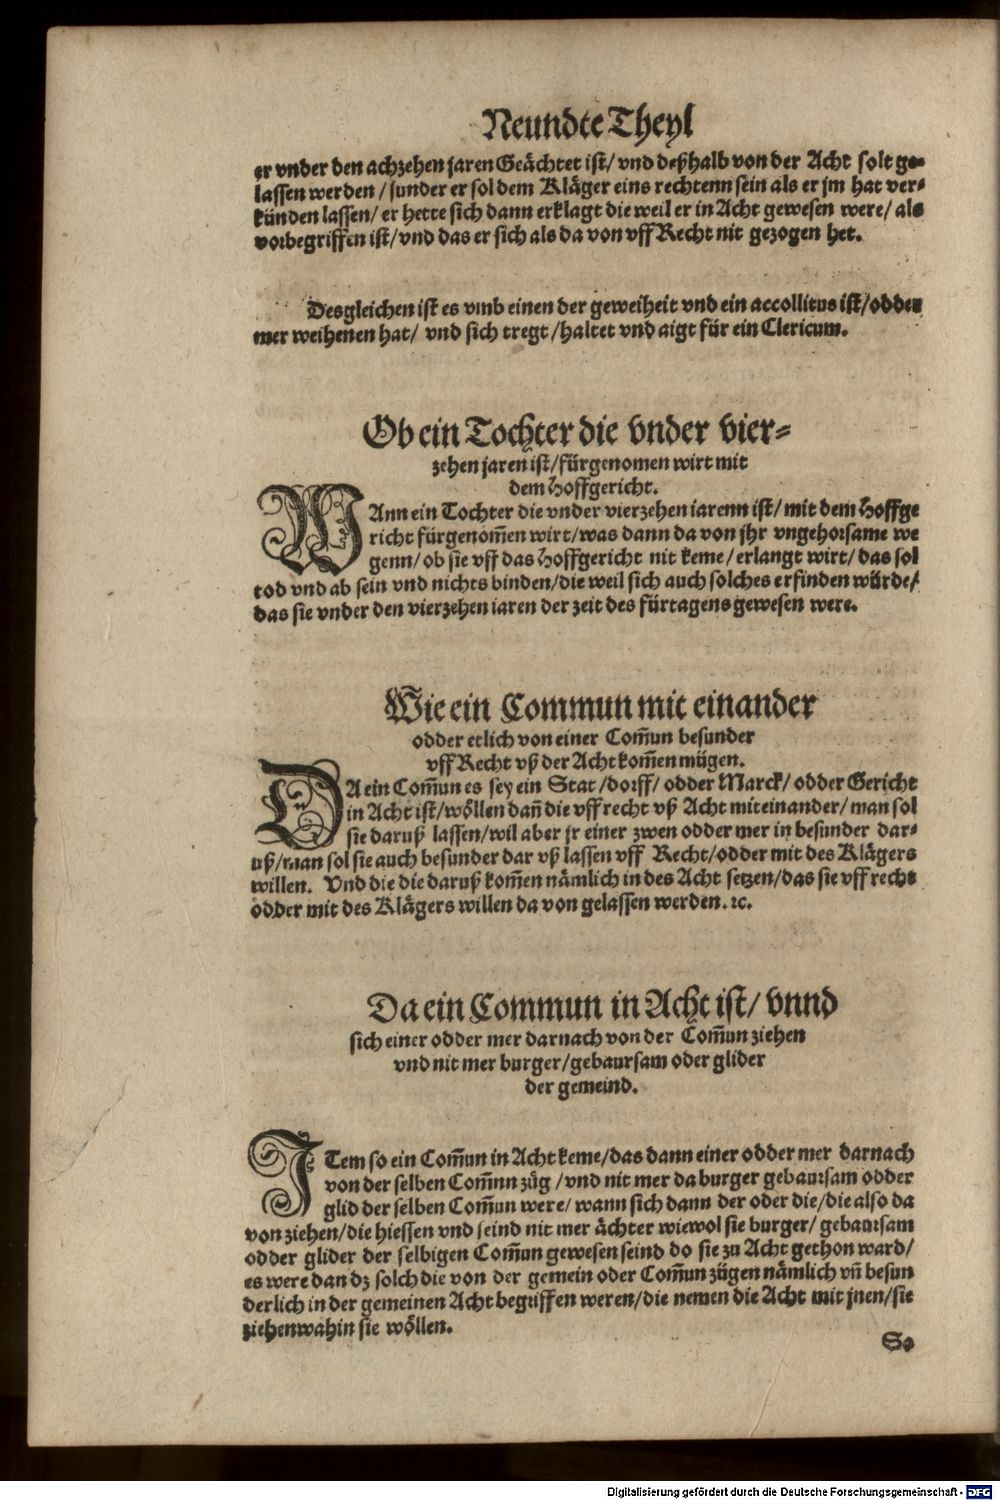 Neundte Theyl
er vnder den achzehen jaren Geächtet ist/ vnd deßhalb von der Acht solt ge-
lassen werden / sunder er sol dem Kläger eins rechtenn sein als er jm hat ver-
künden lassen/ er hette sich dann erklagt die weil er in Acht gewesen were/ als
vorbegriffen ist/ vnd das er sich als da von vff Recht nit gezogen het.
Desgleichen ist es vmb einen der geweiheit vnd ein accollitus ist/ odder
mer weihenen hat/ vnd sich tregt /haltet vnd aigt für ein Clericum.
Ob ein Tochter die vnder vier-
zehen jaren ist/ fürgenomen wirt mit
dem Hoffgericht.
WAnn ein Tochter die vnder vierzehen iarenn ist/ mit dem Hoffge
richt fürgenom̃en wirt/ was dann da von jhr vngehorsame we
genn/ ob sie vff das Hoffgericht nit keme/ erlangt wirt/ das sol
tod vnd ab sein vnd nichts binden/ die weil sich auch solches erfinden würde/
das sie vnder den vierzehen iaren der zeit des fürtagens gewesen were.
Wie ein Commun mit einander
odder etlich von einer Com̃un besunder
vff Recht vß der Acht kom̃en mügen.
DA ein Com̃un es sey ein Stat /dorff/ odder Marck/ odder Gericht
in Acht ist/ wöllen dañ die vff recht vß Acht miteinander/ man sol
sie daruß lassen/ wil aber jr einer zwen odder mer in besunder dar-
uß/ man sol sie auch besunder dar vß lassen vff Recht/ odder mit des Klägers
willen. Vnd die die daruß kom̃en nämlich in des Acht setzen/ das sie vff recht
odder mit des Klägers willen da von gelassen werden. ꝛc.
Da ein Commun in Acht ist/ vnnd
sich einer odder mer darnach von der Com̃un ziehen
vnd nit mer burger/ gebaursam oder glider
der gemeind.
ITem so ein Com̃un in Acht keme/ das dann einer odder mer darnach
von der selben Com̃un züg / vnd nit mer da burger gebaursam odder
glid der selben Com̃un were/ wann sich dann der oder die/ die also da
von ziehen/ die hiessen vnd seind nit mer ächter wiewol sie burger/ gebaursam
odder glider der selbigen Com̃un gewesen seind do sie zu Acht gethon ward/
es were dan dz solch die von der gemein oder Com̃un zügen nämlich vñ besun
derlich in der gemeinen Acht begriffen weren/ die nemen die Acht mit jnen/ sie
ziehen wahin sie wöllen.
So
Digitalisierung gefördert durch die Deutsche Forschungsgemeinschaft - DFG